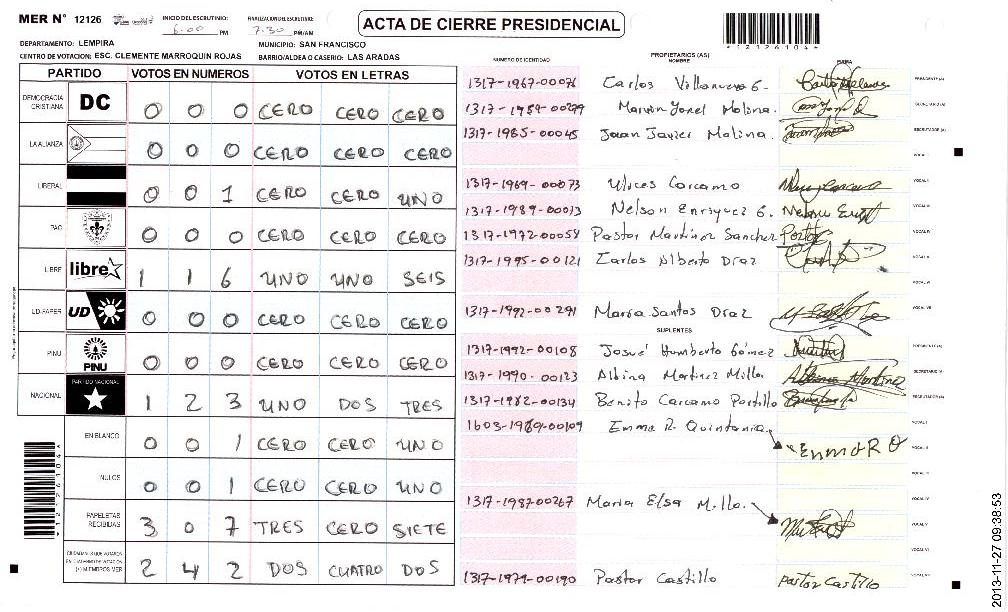 MER N° 12126
INICIO DEL ESCRUTINIO: 6:00 PM
FINALIZACION DEL ESCRUTINIO: 7:30 PM/AM
ACTA DE CIERRE PRESIDENCIAL
*12126104*
DEPARTAMENTO: LEMPIRA
MUNICIPIO: SAN FRANCISCO
CENTRO DE VOTACION: ESC. CLEMENTE MARROQUIN ROJAS
BARRIO/ALDEA O CASERIO: LAS ARADAS
PARTIDO VOTOS EN NUMEROS VOTOS EN LETRAS
DEMOCRACIA CRISTIANA DC 0 0 0 CERO CERO CERO
LA ALIANZA 0 0 0 CERO CERO CERO
LIBERAL 0 0 1 CERO CERO UNO
PAC 0 0 0 CERO CERO CERO
LIBRE libre 1 1 6 UNO UNO SEIS
UD-FAPER UD 0 0 0 CERO CERO CERO
PINU PINU 0 0 0 CERO CERO CERO
NACIONAL PARTIDO NACIONAL 1 2 3 UNO DOS TRES
EN BLANCO 0 0 1 CERO CERO UNO
NULOS 0 0 1 CERO CERO UNO
PAPELETAS RECIBIDAS 3 0 7 TRES CERO SIETE
CIUDADANOS QUE VOTARON EN CUADERNO DE VOTACION (+) MIEMBROS MER 2 4 2 DOS CUATRO DOS
*12126104*
NUMERO DE IDENTIDAD
PROPIETARIOS (AS)
NOMBRE
FIRMA
1317-1967-00076 Carlos Villanueva G. PRESIDENTE (A)
1317-1989-00299 Marvin Yonel Molina. SECRETARIO (A)
1317-1985-00045 Juan Javier Molina. ESCRUTADOR (A)
VOCAL I
1317-1969-00073 Ulices Carcamo VOCAL II
1317-1989-00013 Nelson Enriquez G. VOCAL III
1317-1972-00054 Pastor Martinez Sanchez Pastor VOCAL IV
1317-1995-00121 Carlos Alberto Diaz VOCAL V
VOCAL VI
1317-1992-00291 Maria Santos Diaz VOCAL VII
SUPLENTES
1317-1992-00108 Josué Humberto Gómez PRESIDENTE (A)
1317-1990-00123 Albina Martinez Milla SECRETARIO (A)
1317-1982-00134 Benito Carcamo Portillo ESCRUTADOR (A)
1603-1989-00109 Emma R. Quintania. VOCAL I
Enma R Q VOCAL II
VOCAL III
1317-1987-00267 Maria Elsa Milla. VOCAL IV
VOCAL V
VOCAL VI
1317-1979-00190 Pastor Castillo Pastor Castillo VOCAL VII
2013-11-27 09:38:53